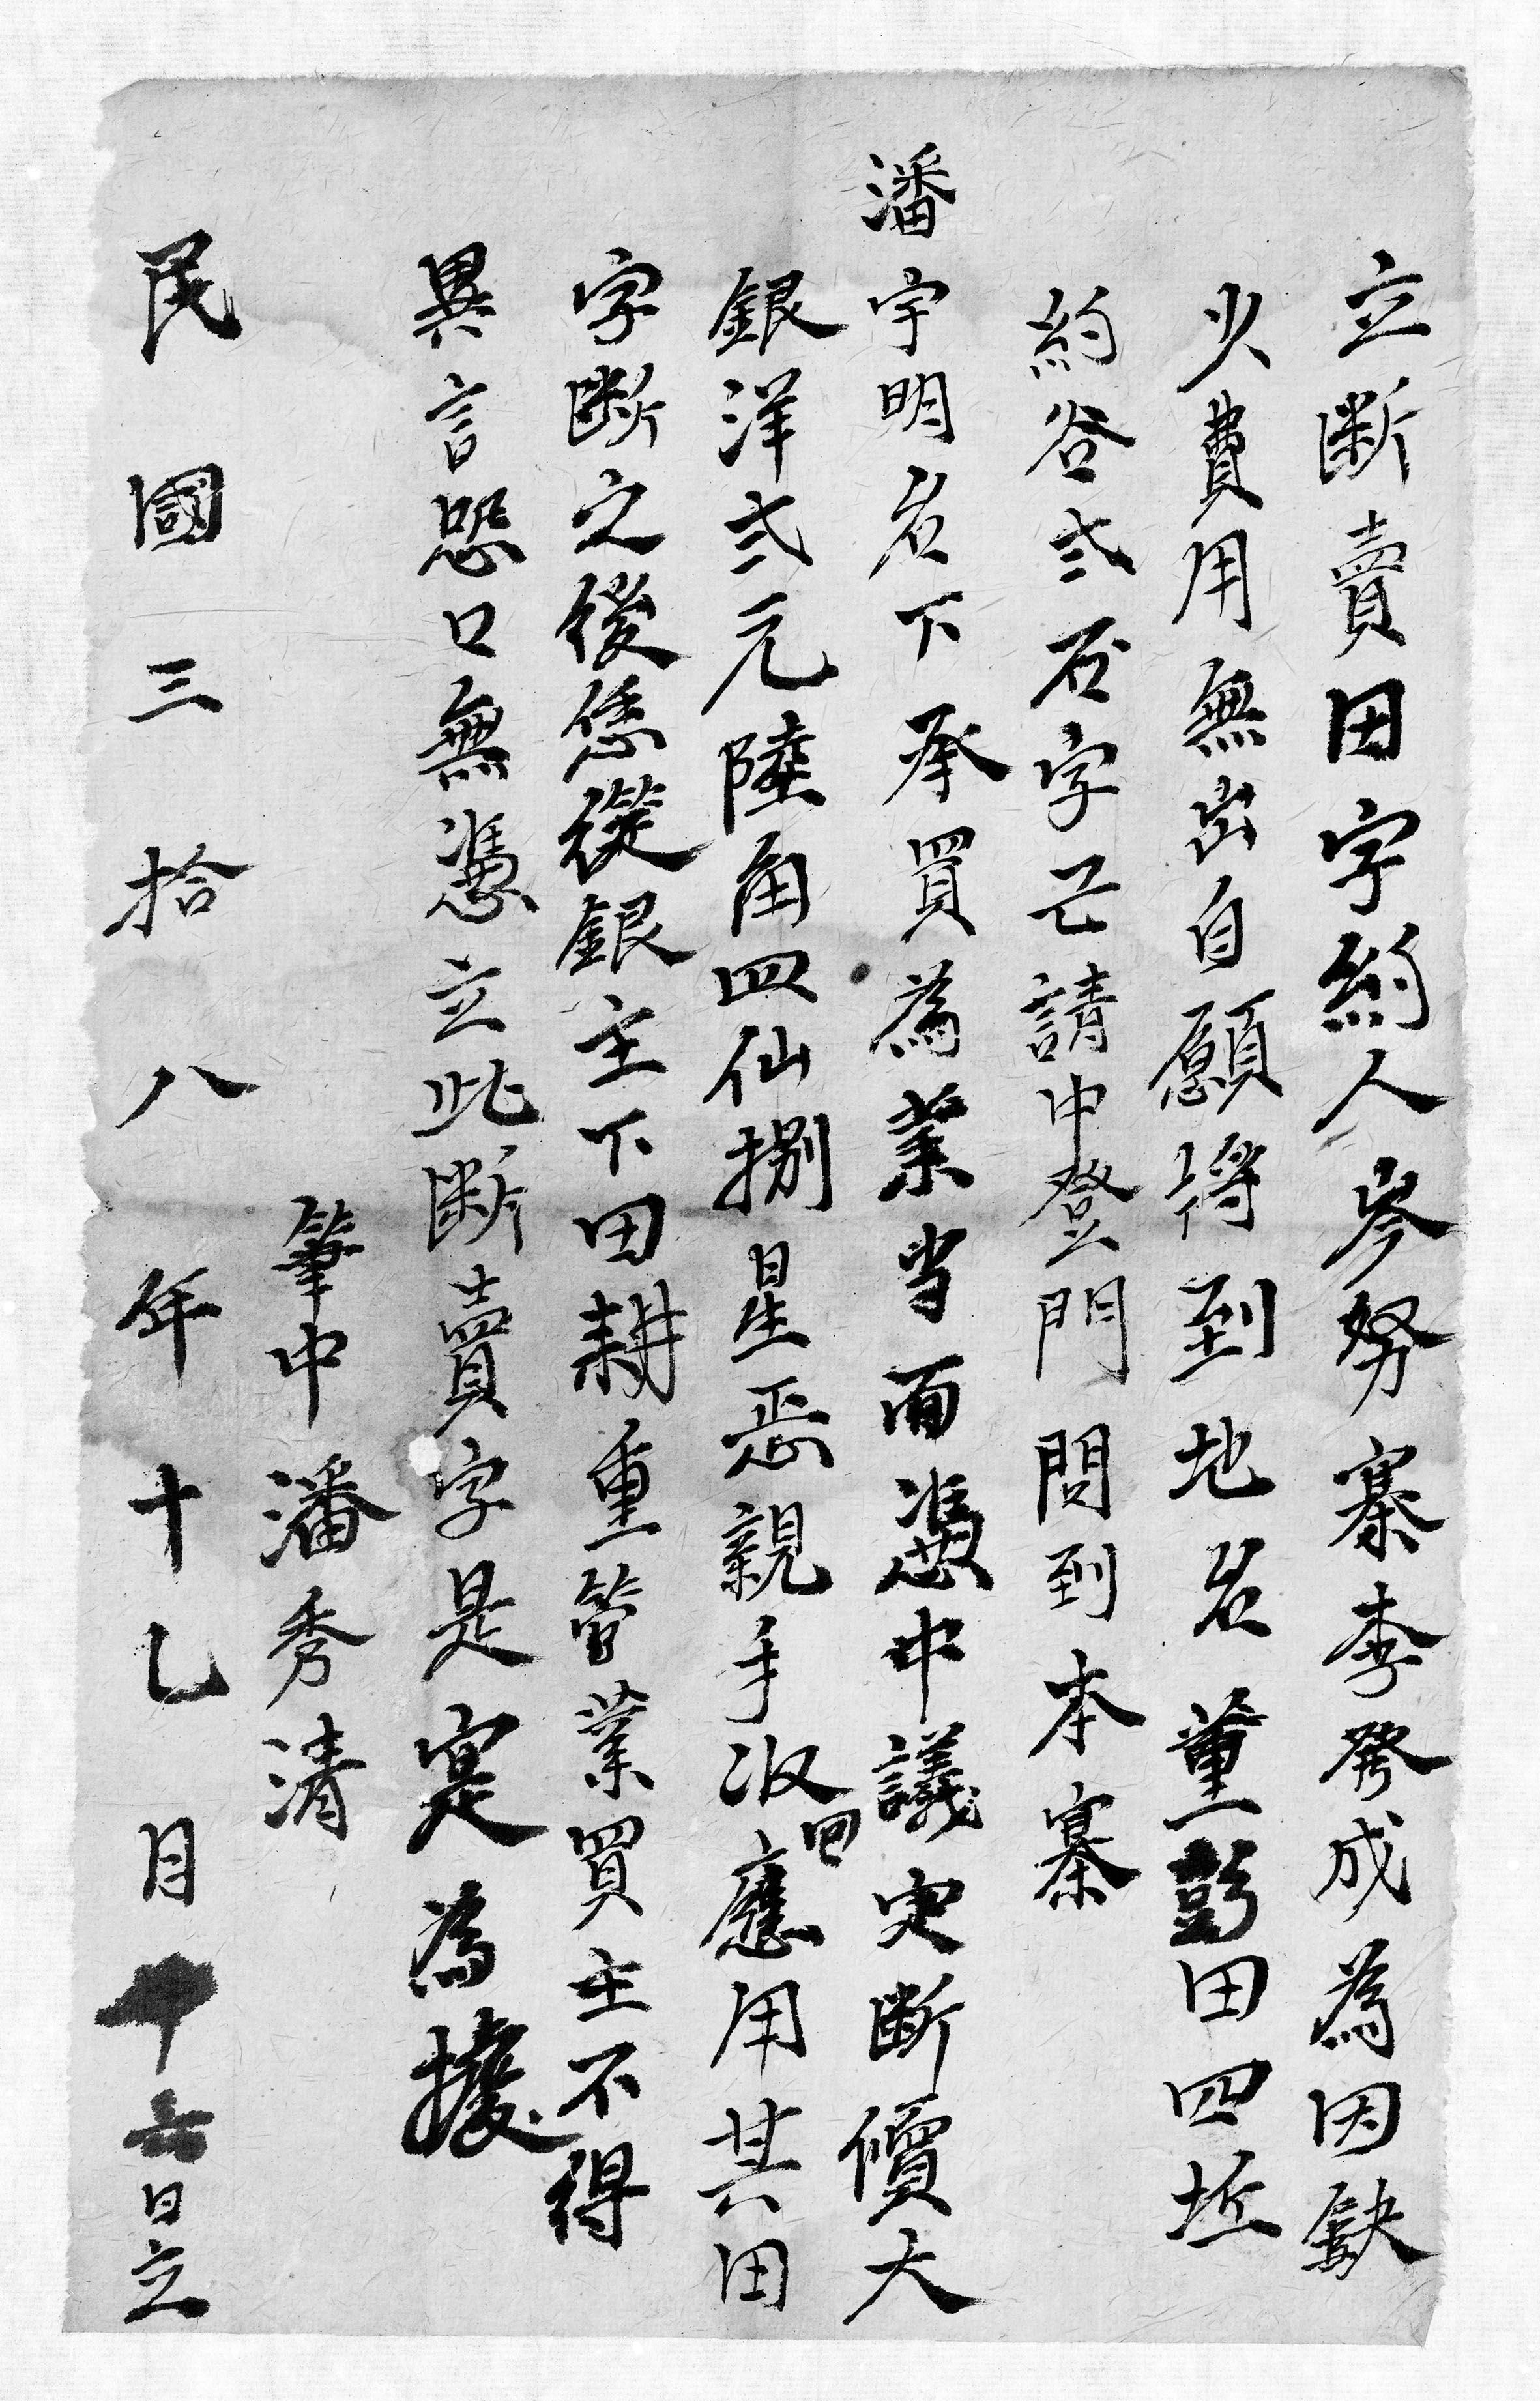 立断賣田字約人岑努寨李發成為因缺
少費用無出自願將到地名董彭田四坵
約谷弍石字已請中登門問到本寨
潘宇明名下承買為業当面憑中議定断價大
銀洋弍元陸角四仙捌星恶親手收回應用其田
字断之後恁從銀主下田耕重管業買主不得
異言恐口無憑立此断賣字是寔為據
筆中潘秀清
民國三拾八年十乙月十六日立